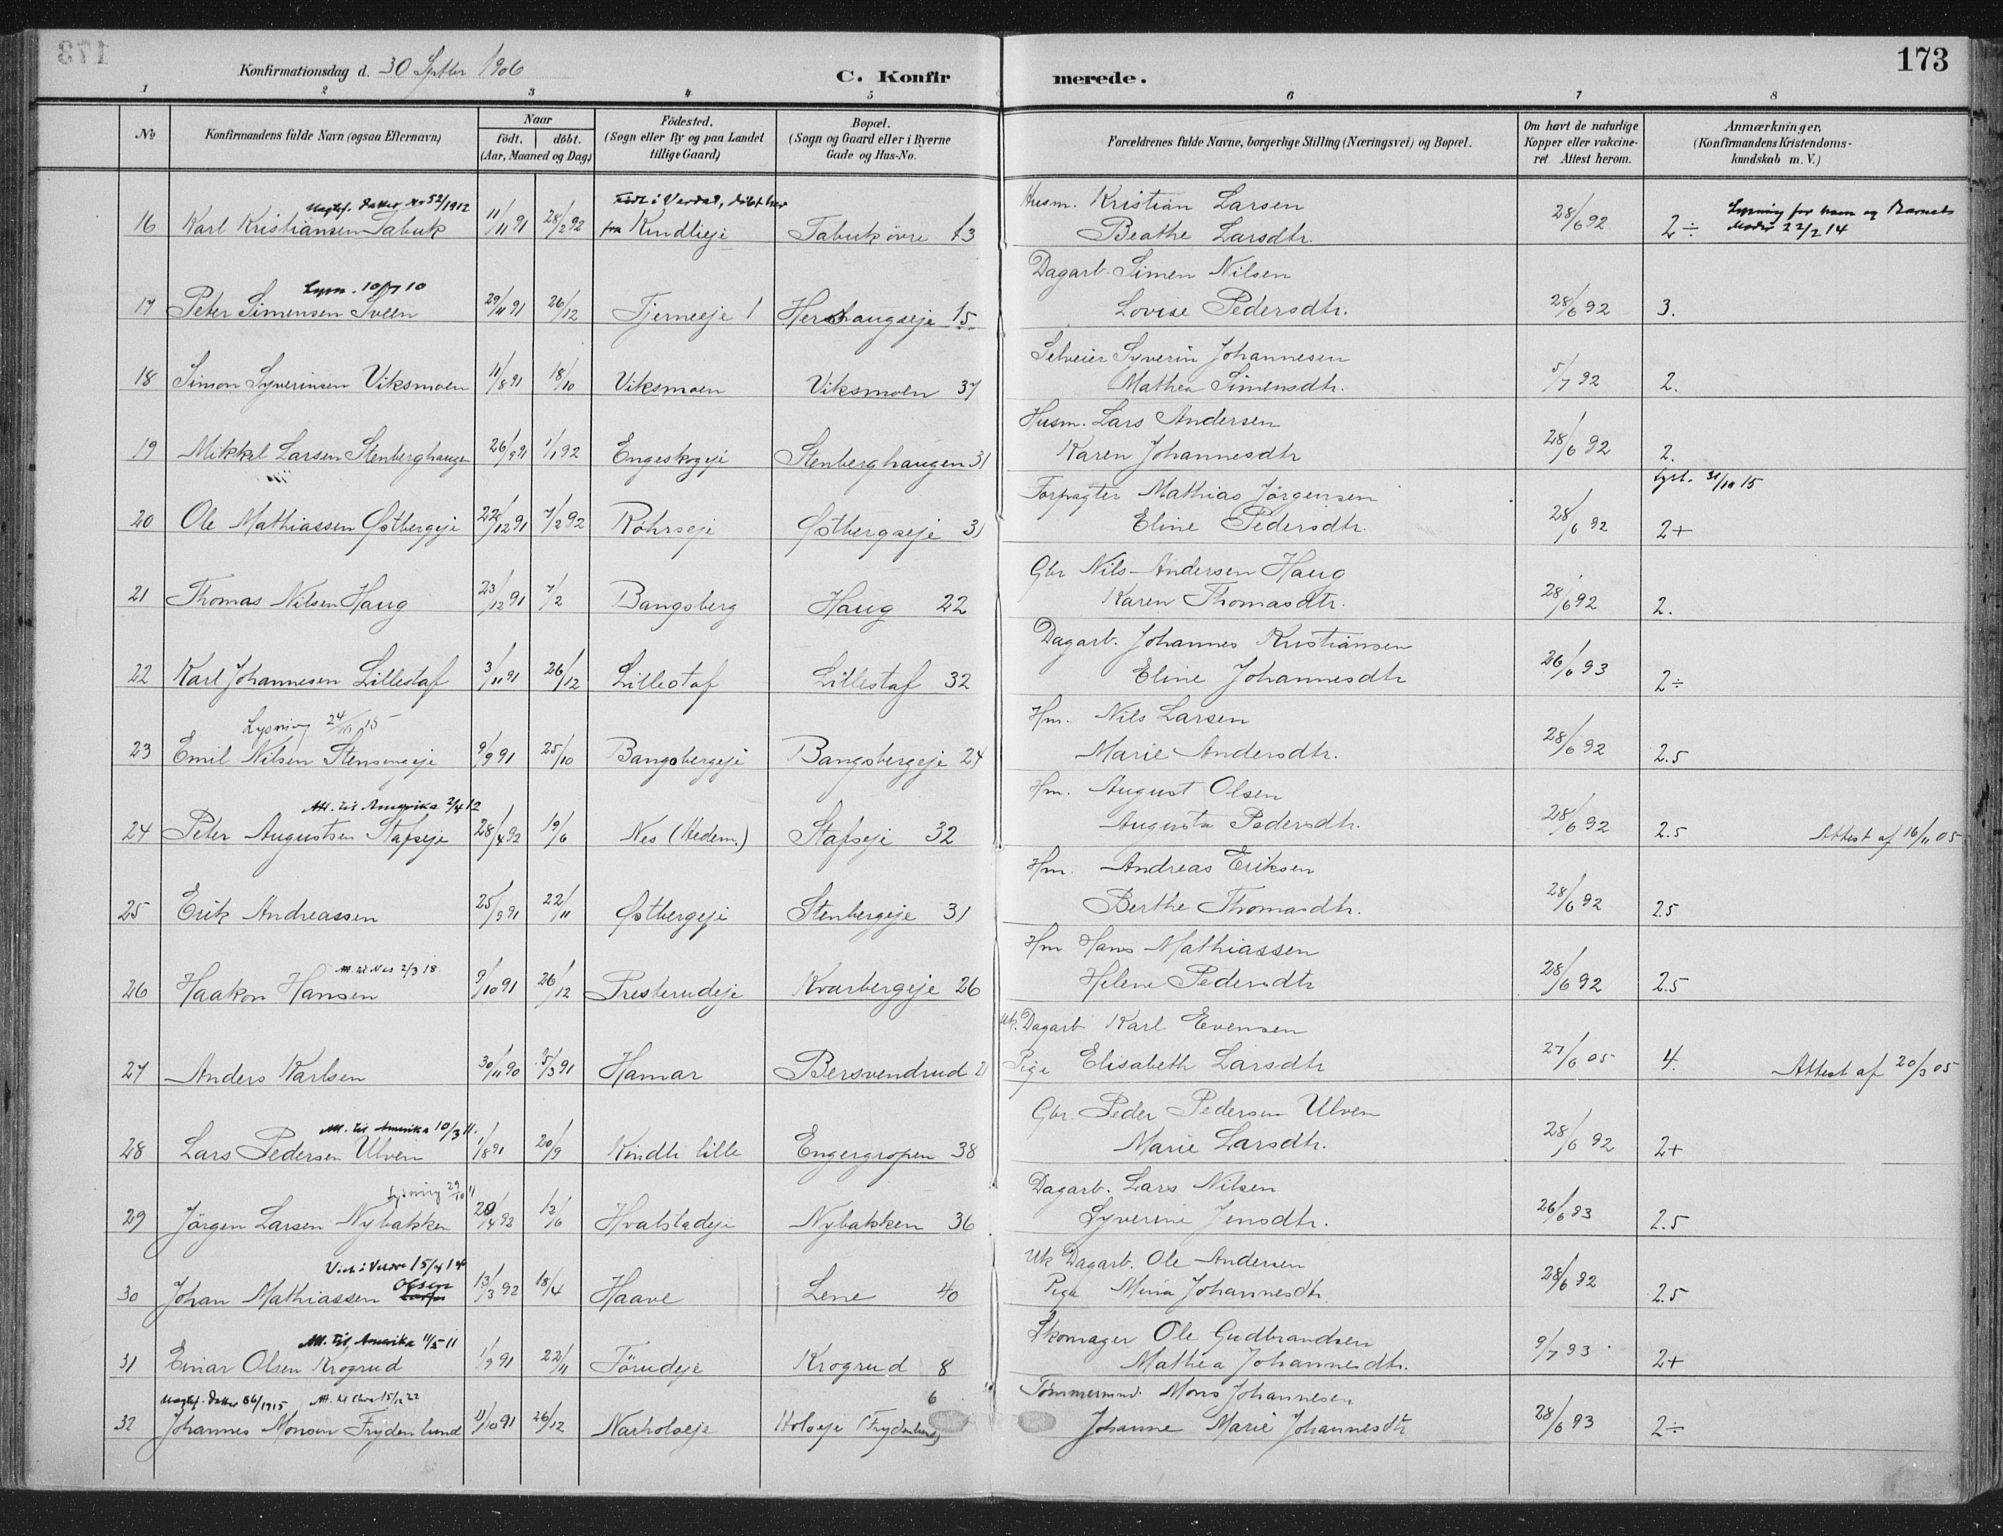 173
Konfirmationsdag d. 30 Septbr 1906
C. Konfirmerede.
1 2 3 4 5 6 7 8
No
Konfirmandens fulde Navn (ogsaa Efternavn)
Naar
födt. döbt.
(Aar, Maaned og Dag)
Födested.
(Sogn eller By og paa Landet
tillige Gaard)
Bopæl.
(Sogn og Gaard eller i Byerne
Gade og Hus-No.
Forældrenes fulde Navne, borgerlige Stilling (Næringsvei) og Bopæl.
Om havt de naturlige
Kopper eller vakcine-
ret. Attest herom.
Anmærkninger.
(Konfirmandens Kristendoms-
kundskab m. V.)
Uegtef. datter No 52/1912
Födt i Verdal, döbt her
Husm. Kristian Larsen
Lysning for ham og Barnets
16 Karl Kristiansen Tabuk 11/11 91 28/2 92 fra Kindlieje Tabuk övre 13 Beathe Larsdtr. 28/6 92 2÷ Moder 22/2 14
Lysn. 10/7 10
Dagarb. Simen Nilsen
17 Peter Simensen Sveen 29/11 91 26/12 Tjerneeje 1 Hershaugseje 15 Lovise Pedersdtr. 28/6 92 3.
Selveier Syverin Johannesen
18 Simon Syverinsen Viksmoen 11/8 91 18/10 Viksmoen Viksmoen 37 Mathea Simensdtr. 5/7 92 2.
Husm. Lars Andersen
19 Mikkel Larsen Stenberghaugen 26/9 91 1/1 92 Engeskogeje Stenberghaugen 31 Karen Johannesdtr 28/6 92 2.
Forpagter Mathias Jörgensen
Lyst. 31/10 15
20 Ole Mathiassen Østbergeje 22/12 91 7/2 92 Röhrseje Østbergseje 31 Eline Pedersdtr. 28/6 92 2+
Gbr Nils Andersen Haug
21 Thomas Nilsen Haug 23/12 91 7/2 Bangsberg Haug 22 Karen Thomasdtr. 28/6 92 2.
Dagarb. Johannes Kristiansen
22 Karl Johannesen Lillestaf 3/11 91 26/12 Lillestaf Lillestaf 32 Eline Johannesdtr 26/6 93 2÷
Lysning 24/11 15
Hm. Nils Larsen
23 Emil Nilsen Stensengeje 9/9 91 25/10 Bangsbergeje Bangsbergeje 24 Marie Andersdtr. 28/6 92 2.5
Att. til Amerika 2/4 12
Hm. August Olsen
24 Peter Augustsen Stafseje 28/4 92 19/6 Nes (Hedem.) Stafseje 32 Augusta Pedersdtr. 28/6 92 2.5 Attest af 16/11 05
Hm. Andreas Eriksen
25 Erik Andreassen 25/9 91 22/11 Østbergeje Stenbergeje 31 Berthe Thomasdtr. 28/6 92 2.5
Att. til Nes 2/3 18
Hm Hans Mathiassen
26 Haakon Hansen 9/10 91 26/12 Presterudeje Kvarbergeje 26 Helene Pedersdtr 28/6 92 2.5
Uk. Dagarb Karl Evensen
27 Anders Karlsen 30/11 90 5/3 91 Hamar Bersvendrud 21 Pige Elisabeth Larsdtr 27/6 05 4. Attest af 20/3 05
Att. til Amerika 10/3 11.
Gbr. Peder Pedersen Ulven
28 Lars Pedersen Ulven 1/8 91 20/9 Kindli lille Engergropen 38 Marie Larsdtr. 28/6 92 2+
Lysning 29/10 11
Dagarb. Lars Nilsen
29 Jörgen Larsen Nybakken 20/4 92 12/6 Hvalstadeje Nybakken 36 Syverine Jensdtr. 26/6 93 2.5
15/4 14
Uk Dagarb. Ole Andersen
30 Johan Mathiassen Olsen 13/3 92 18/4 Haave Lene 40 Pige Mina Johannesdtr 28/6 92 2.5
Att. til Amerika 11/5 11
Skomager Ole Gudbrandsen
31 Einar Olsen Krogrud 1/9 91 22/11 Törudeje Krogrud 8 Mathea Johannesdtr. 9/7 93 2+
Uegtef. datter 66/1915 Att. til Chra 15/12 22
6
Tömmermand. Mons Johannesen
32 Johannes Monsen Frydenlund 11/10 91 26/12 Narholseje Holseje (Frydenlund) Johanne Marie Johannesdtr 28/6 93 2÷